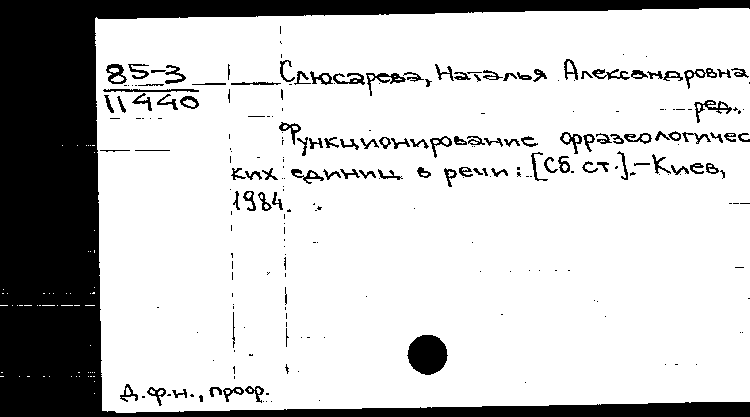 85-3
11440
Слюсарева, Наталья Александровна,
ред.
Функционирование фразеологичес
ких единиц в речи: [Сб. ст.].-Киев,
1984.
Д.ф.н., проф.